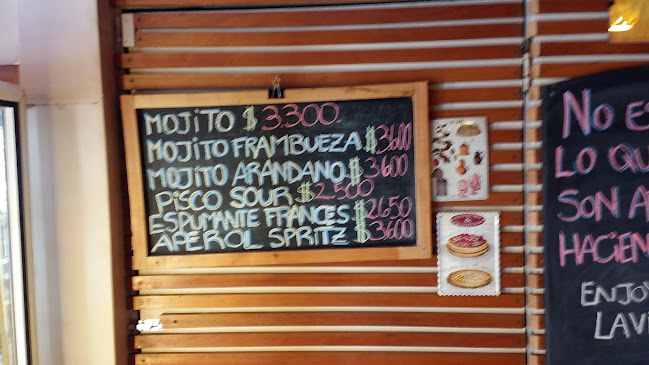 MOJITO $ 3.300.
MOJITO FRAMBUEZA $3600
MOJITO ARÁNDANO $3600
PISCO SOUR $2.500
ESPUMANTE FRANCES $2650
APEROL SPRITZ $3600
NO
LO QU
SON A
HACIEN
ENJOY
LAVI